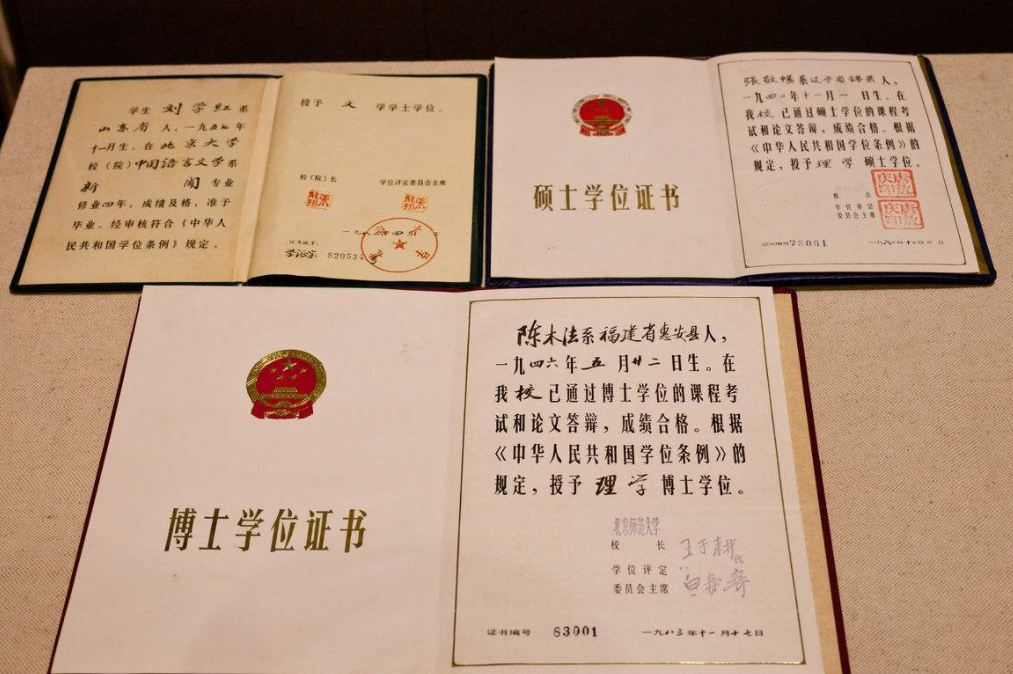 学生 刘学红 系
山东省 人，一九五七年
十一月生。在 北京大学
校（院）中国语言文学系
新闻 专业
修业四年，成绩及格，准予
毕业。经审核符合《中华人
民共和国学位条例》规定，
授予 文 学学士学位。
校（院）长 学位评定委员会主席
证书编号：
820534 号
硕士学位证书
一九四
我校已通过硕士学位的课程考
试和论文答辩，成绩合格。根据
《中华人民共和国学位条例》的
规定，授予理学硕士学位。
校 长
学位评定
委员会主席
证书编号 78081
博士学位证书
陈木法系福建省惠安县人，
一九四六年五月廿二日生。在
我校已通过博士学位的课程考
试和论文答辩，成绩合格。根据
《中华人民共和国学位条例》的
规定，授予 理学 博士学位。
北京师范大学
校 长 王于耕代
学位评定
委员会主席
证书编号 83001 一九八三年十一月十七日